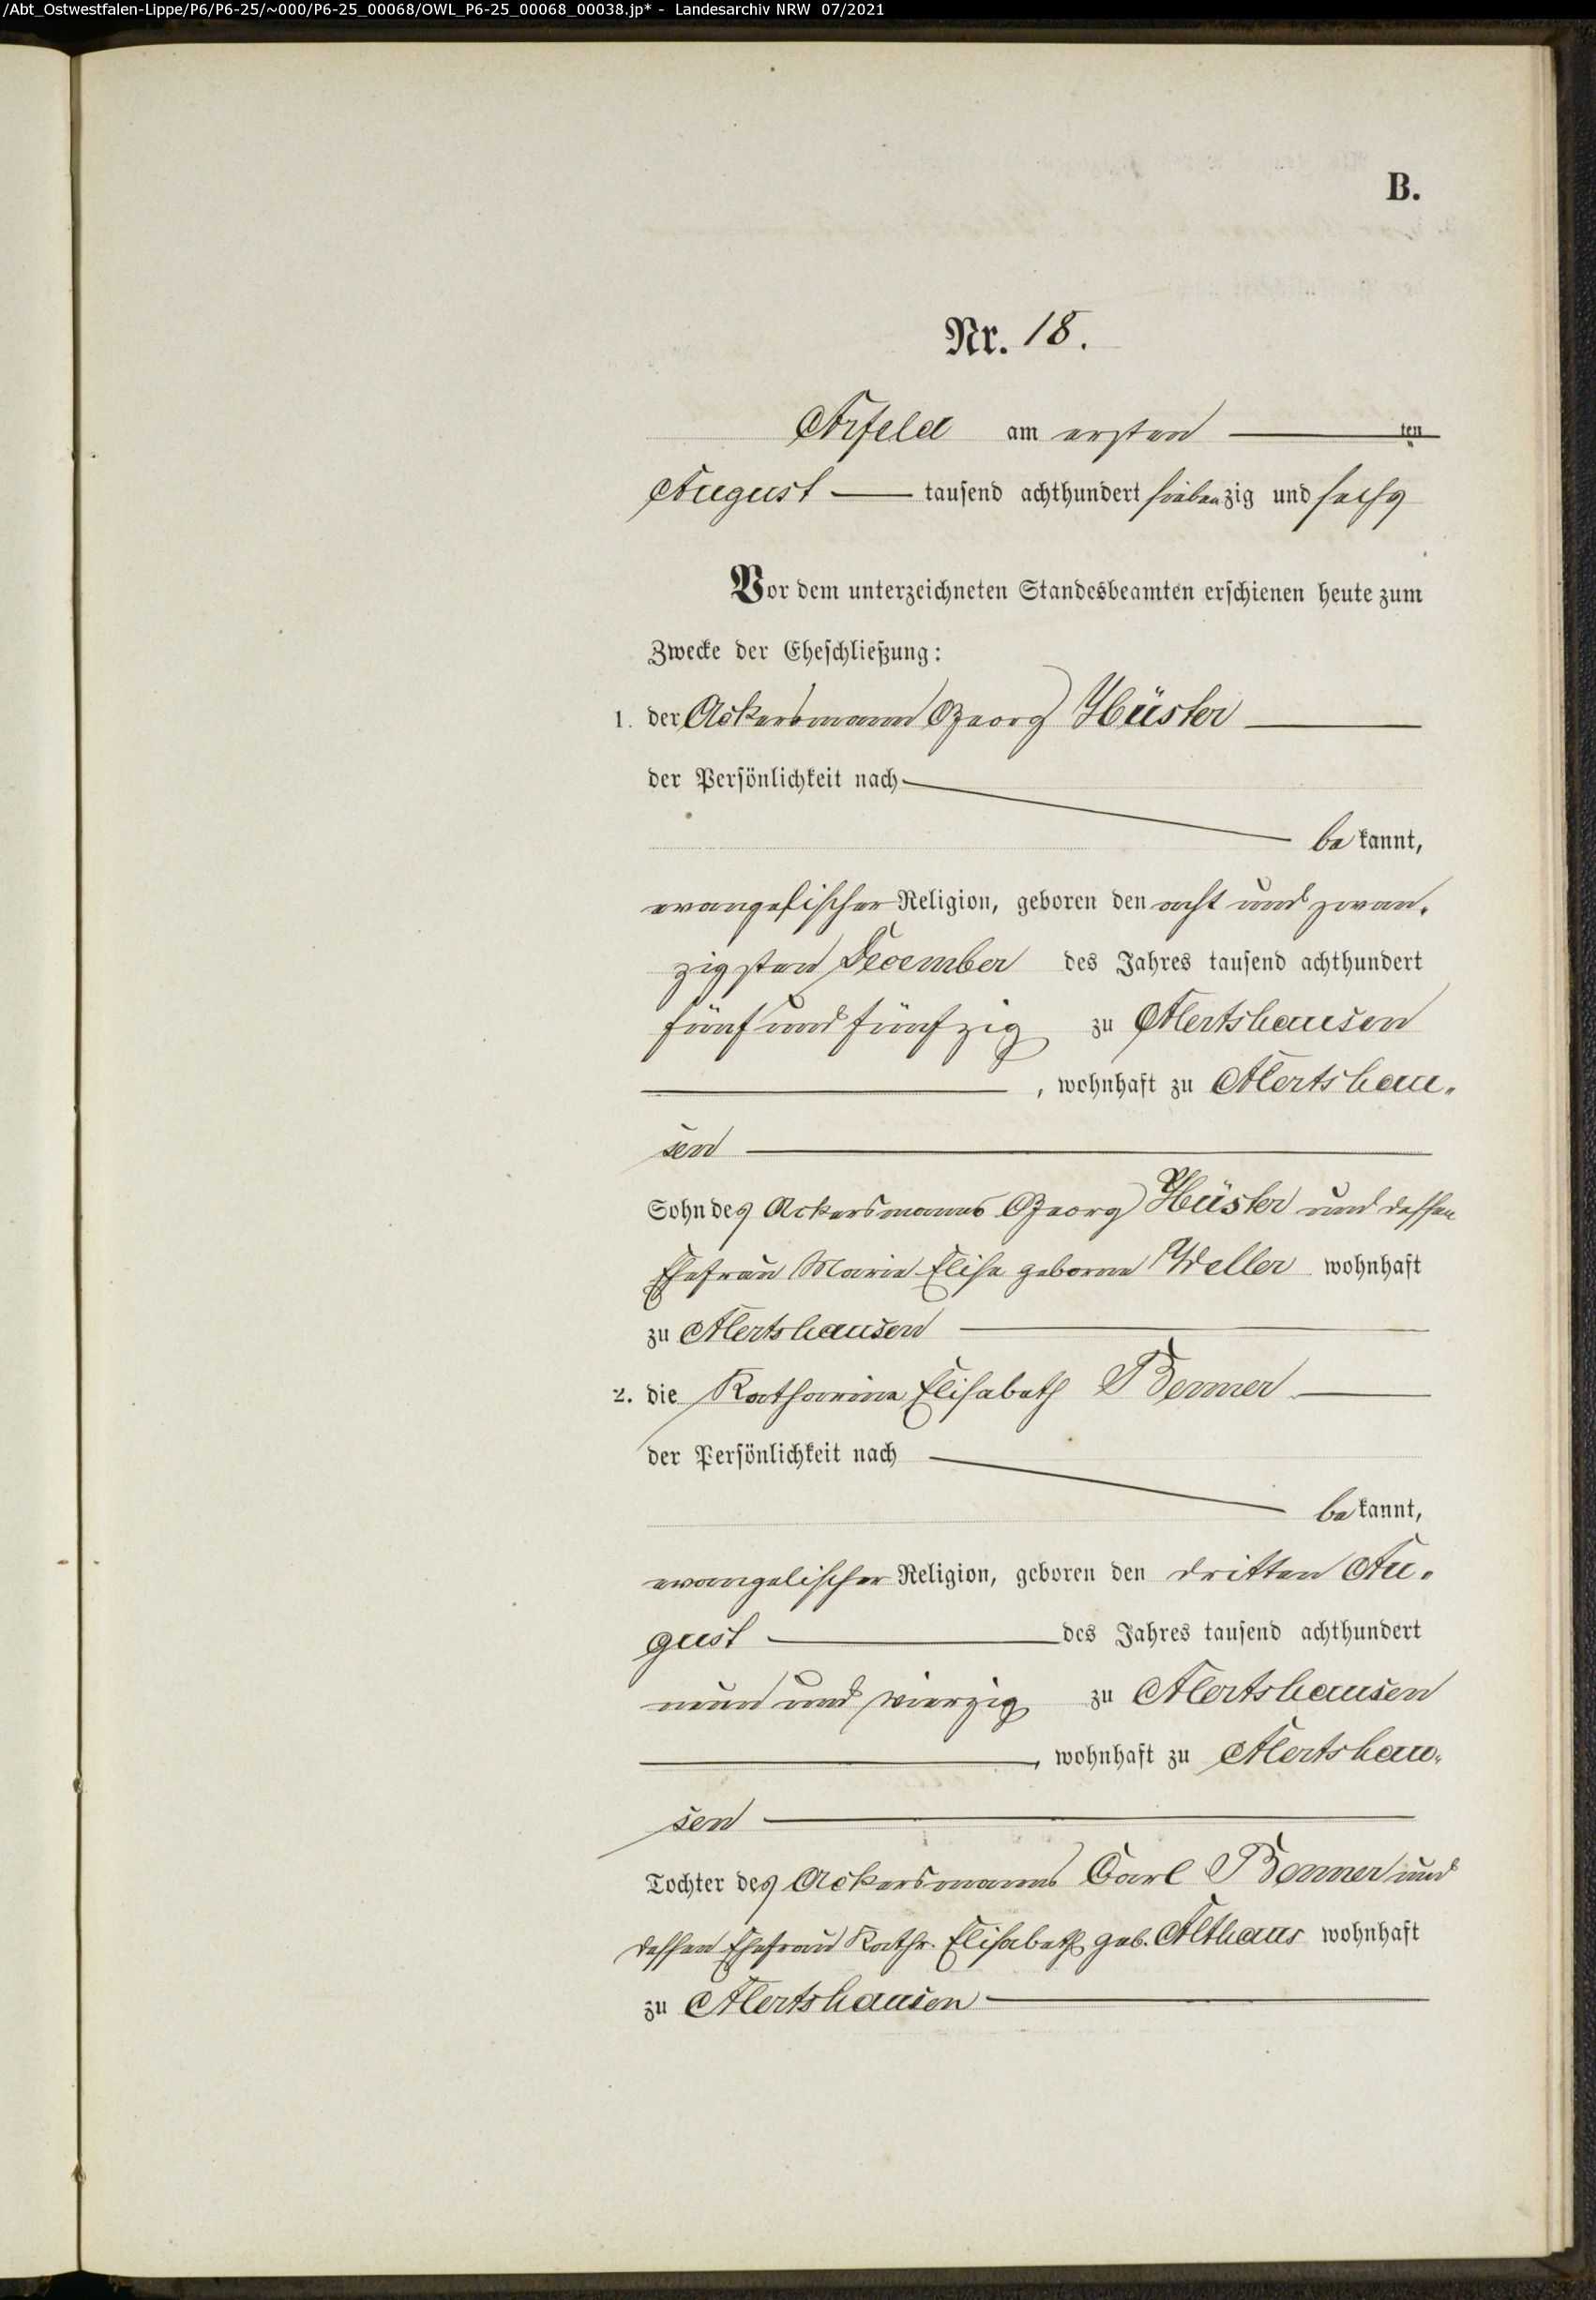 /Abt_Ostwestfalen-Lippe/P6/P6-25/~000/P6-25_00068/OWL_P6-25_00068_00038.jp* - Landesarchiv NRW 07/2021
B.
Nr. 18.
Arfeld am ersten ten
August tausend achthundert siebenzig und sechs
Vor dem unterzeichneten Standesbeamten erschienen heute zum
Zwecke der Eheschließung:
1. der Ackersmann Georg Hüster
der Persönlichkeit nach
bekannt,
evangelischer Religion, geboren den acht und zwan-
zigsten December des Jahres tausend achthundert
fünf und fünfzig zu Alertshausen
, wohnhaft zu Alertshau-
sen
Sohn des Ackersmanns Georg Hüster und dessen
Ehefrau Marie Elise geborne Weller wohnhaft
zu Alertshausen
2. die Katharine Elisabeth Benner
der Persönlichkeit nach
bekannt,
evangelischer Religion, geboren den dritten Au-
gust des Jahres tausend achthundert
neun und vierzig zu Alertshausen
, wohnhaft zu Alertshau-
sen
Tochter des Ackersmanns Carl Benner und
dessen Ehefrau Kathr. Elisabeth geb. Althaus wohnhaft
zu Alertshausen